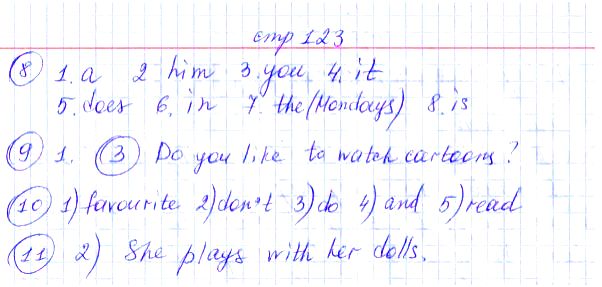 стр 123
8 1. a 2 him 3. you 4. it
5. does 6. in 7. the (Mondays) 8. is
9 1. 3 Do you like to watch cartoons?
10 1) favourite 2) don't 3) do 4) and 5) read
11 2) She plays with her dolls.